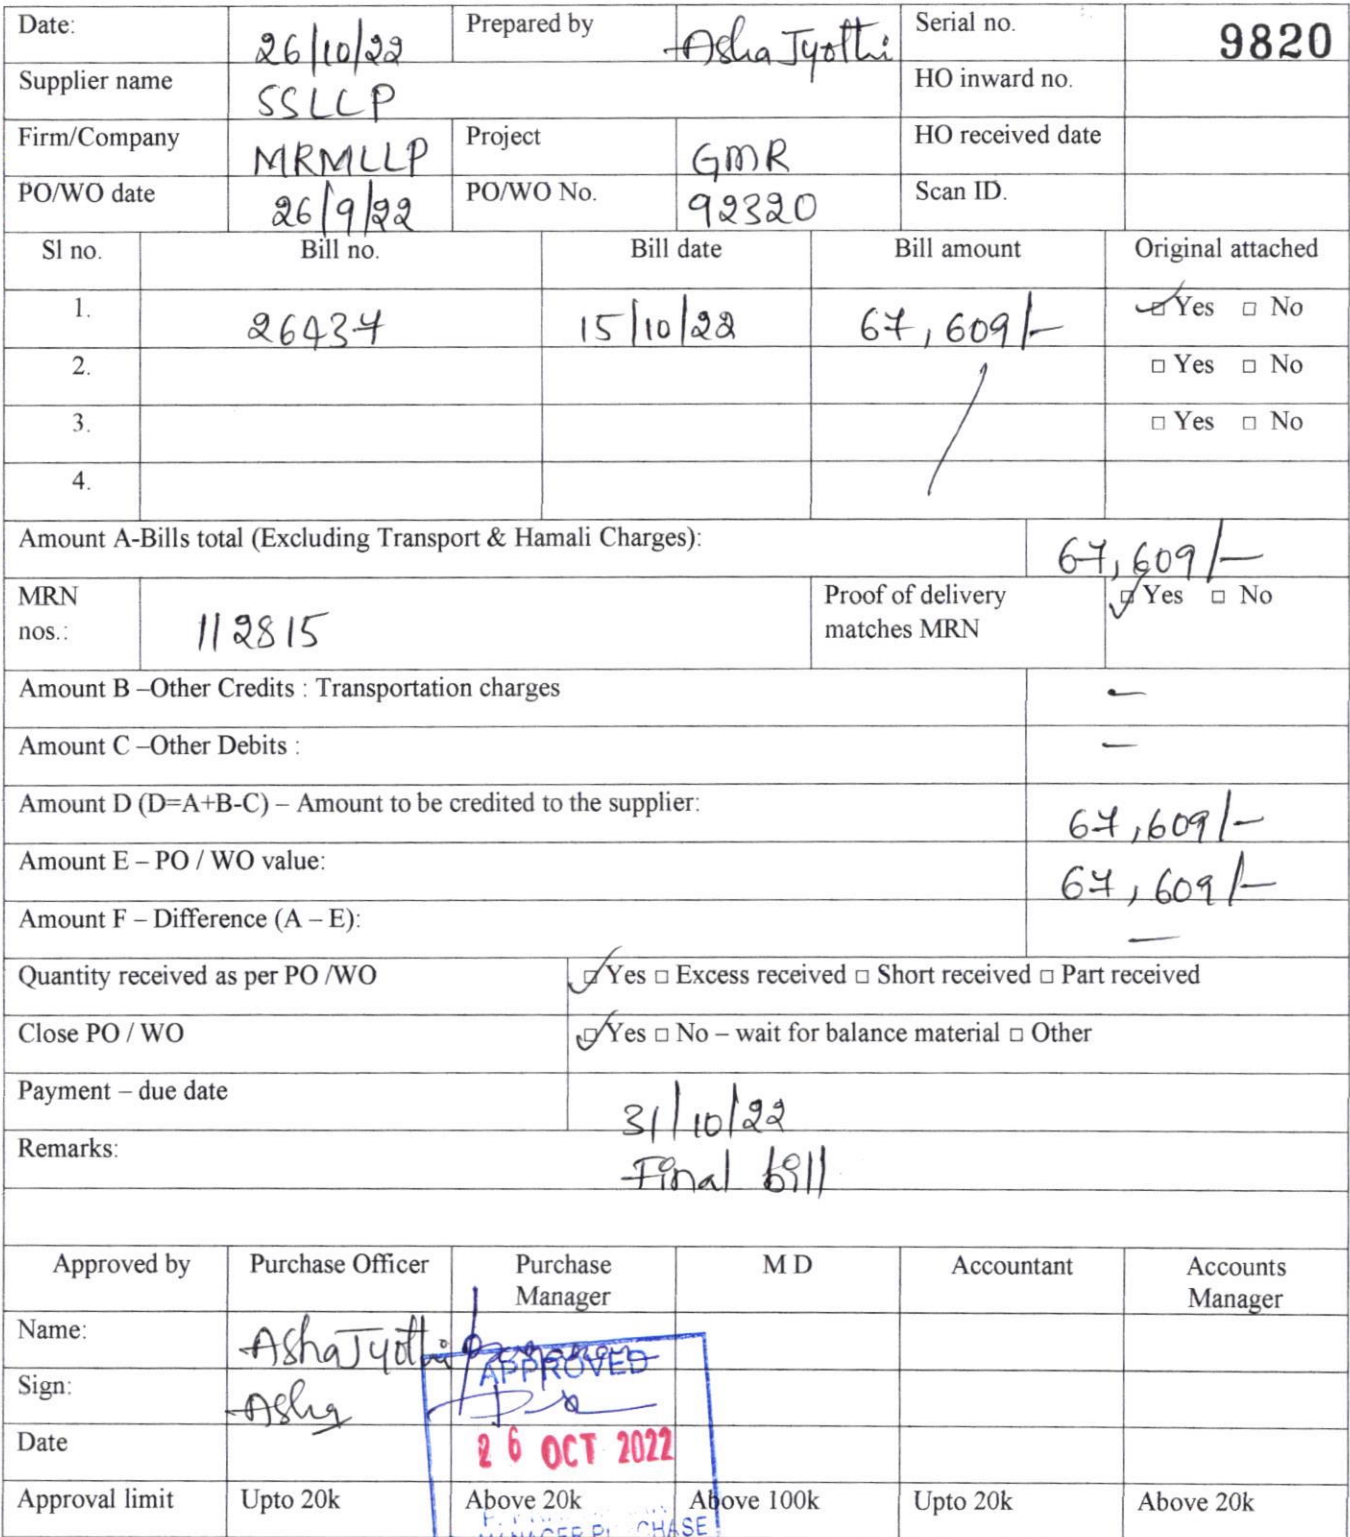 Date: 26/10/22 Prepared by Asha Jyothi Serial no. 9820
Supplier name SSLLP HO inward no.
Firm/Company MRMLLP Project GMR HO received date
PO/WO date 26/9/22 PO/WO No. 92320 Scan ID.
Sl no. Bill no. Bill date Bill amount Original attached
1. 26437 15/10/22 67,609/- Yes No
2. Yes No
3. Yes No
4.
Amount A-Bills total (Excluding Transport & Hamali Charges): 67,609/-
MRN nos.: 112815 Proof of delivery matches MRN Yes No
Amount B –Other Credits : Transportation charges -
Amount C –Other Debits : -
Amount D (D=A+B-C) – Amount to be credited to the supplier: 67,609/-
Amount E – PO / WO value: 67,609/-
Amount F – Difference (A – E): -
Quantity received as per PO /WO Yes Excess received Short received Part received
Close PO / WO Yes No – wait for balance material Other
Payment – due date 31/10/22
Remarks: Final bill
Approved by Purchase Officer Purchase Manager M D Accountant Accounts Manager
Name: Asha Jyothi
APPROVED
Sign: Asha
Date 26 OCT 2022
Approval limit Upto 20k Above 20k Above 100k Upto 20k Above 20k
MANAGER PURCHASE